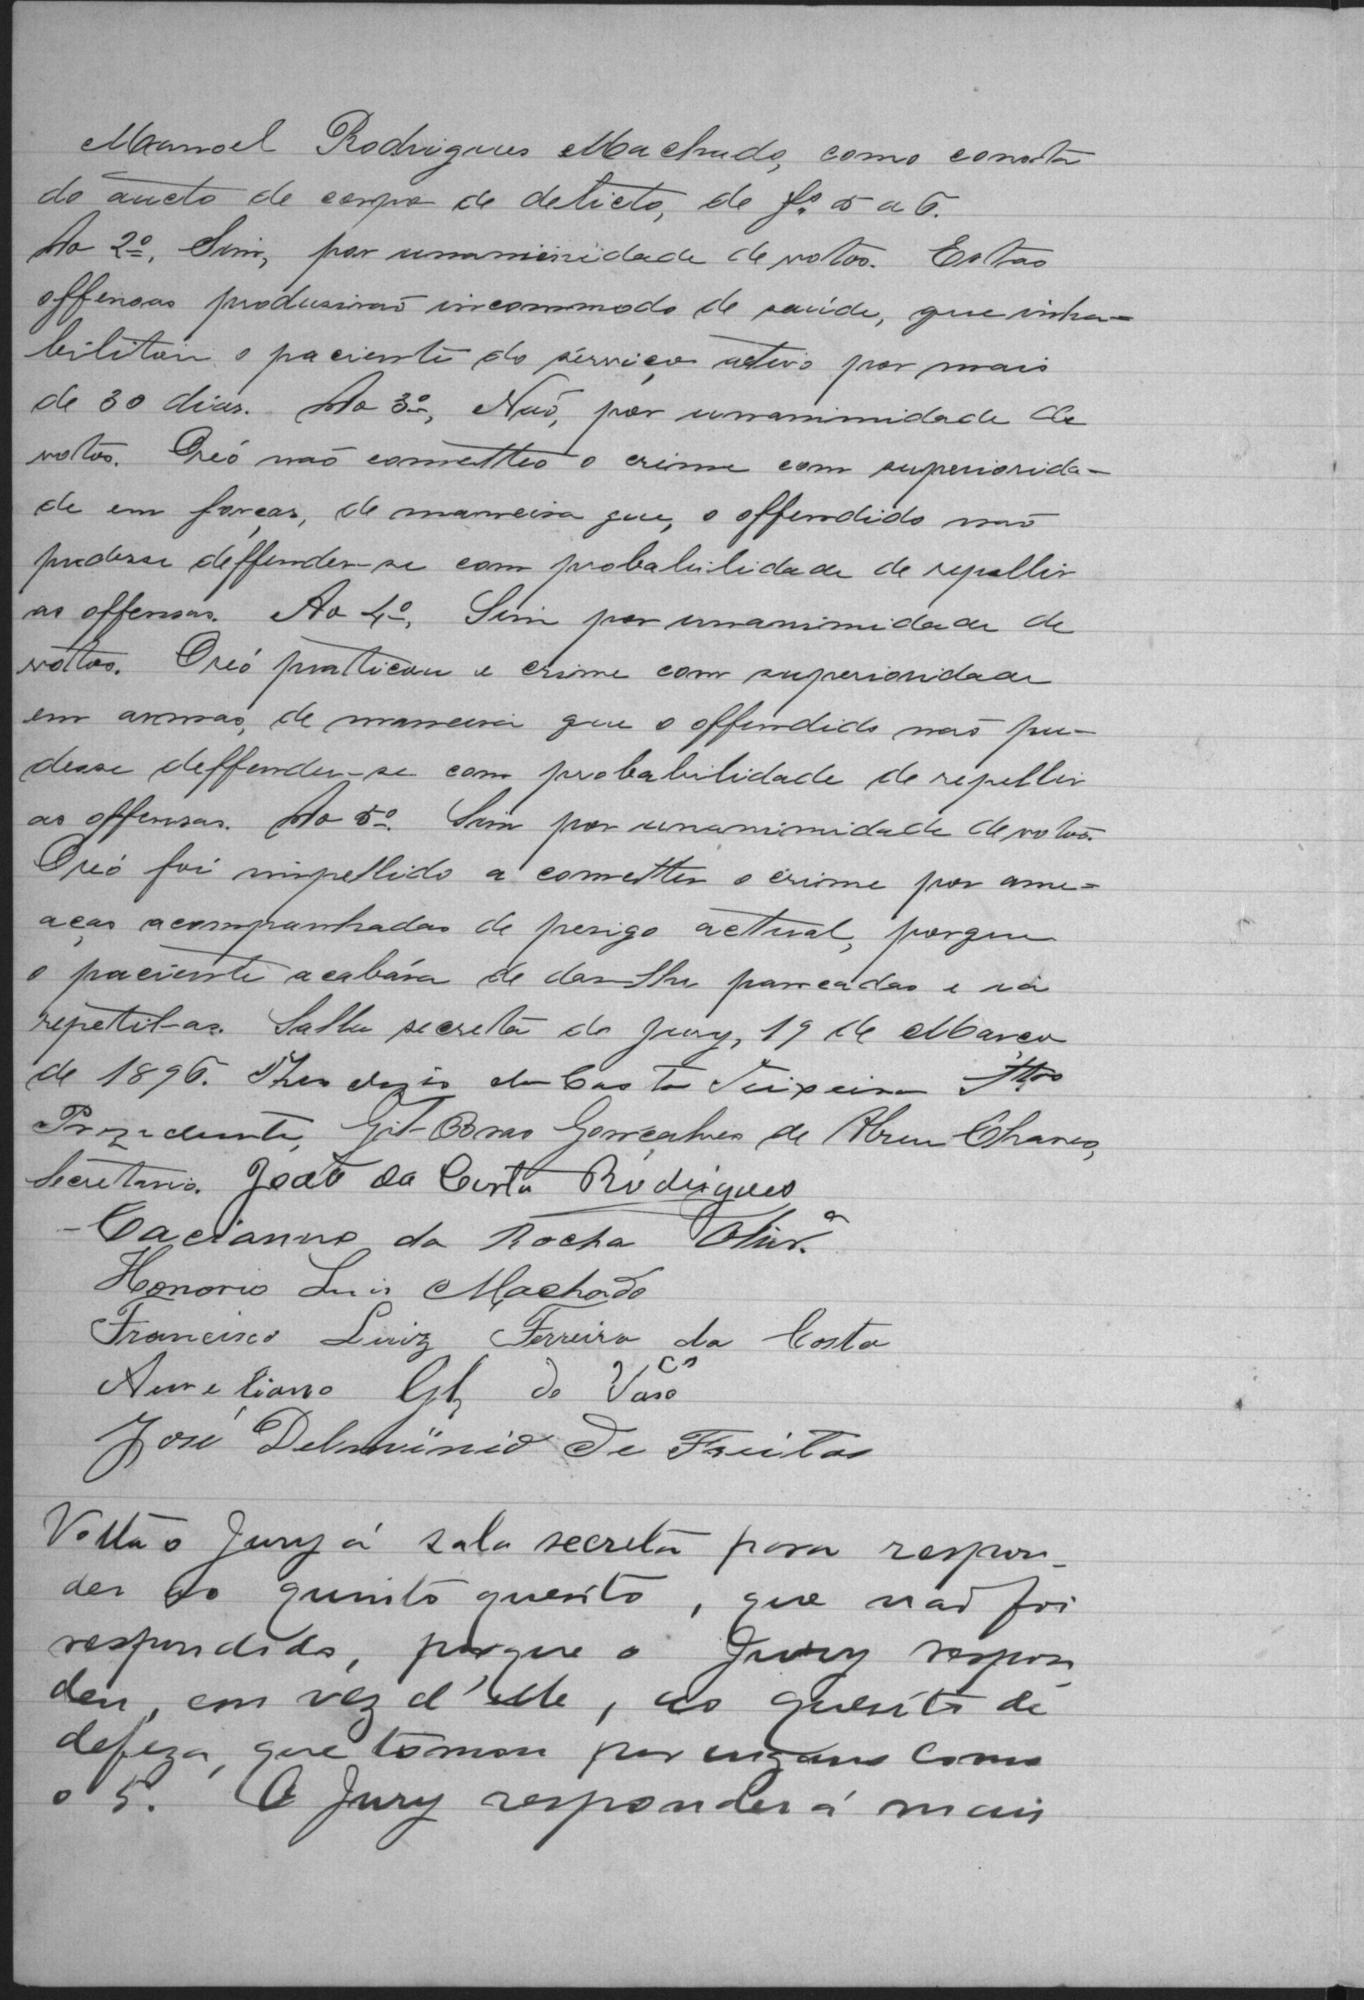 Manoel Rodrigues Machado, como consta
do aucto de corpo de delicto, de fs. 5 a 6.
Ao 2º, Sim, por unanimidade de votos. Estas
offensas produsirão incommodo de saúde, que inha-
bilitou o paciente do serviço activo por mais
de 30 dias. Ao 3º, Não, por unanimidade de
votos. O reó não cometteo o crime com superiorida-
de em forças, de maneira que, o offendido não
pudesse deffender-se com probabilidade de repellir
as offensas. Ao 4º, Sim por unanimidade de
votos. O reó praticou o crime com superioridade
em armas, de maneira que o offendido não pu-
desse deffender-se com probabilidade de repellir
as offensas. Ao 5º. Sim por unanimidade de votos.
O reó foi impellido a cometter o crime por ame-
aças acompanhadas de perigo actual, porque
o paciente acabára de dar-lhe pancadas e ia
repetil-as. Salla secreta do Jury, 19 de Março
de 1896. da Costa Teixeira
Prezidente, Gil Bras Gonçalves de Abreu Chaves,
Secretario. João da Costa Rodrigues
Cacianno da Rocha Olivrª
Honorio Luis Machado
Francisco Luiz Ferreira da Costa
Aureliano Glz de Vascos
José Delminio de Freitas
Volta o Jury á sala secreta para respon-
der ao quinto quesito, que não foi
respondido, porque o Jury respon
deu, em vez d'elle, ao quesito de
defeza, que tomou por engano como
o 5. O Jury responderá mais